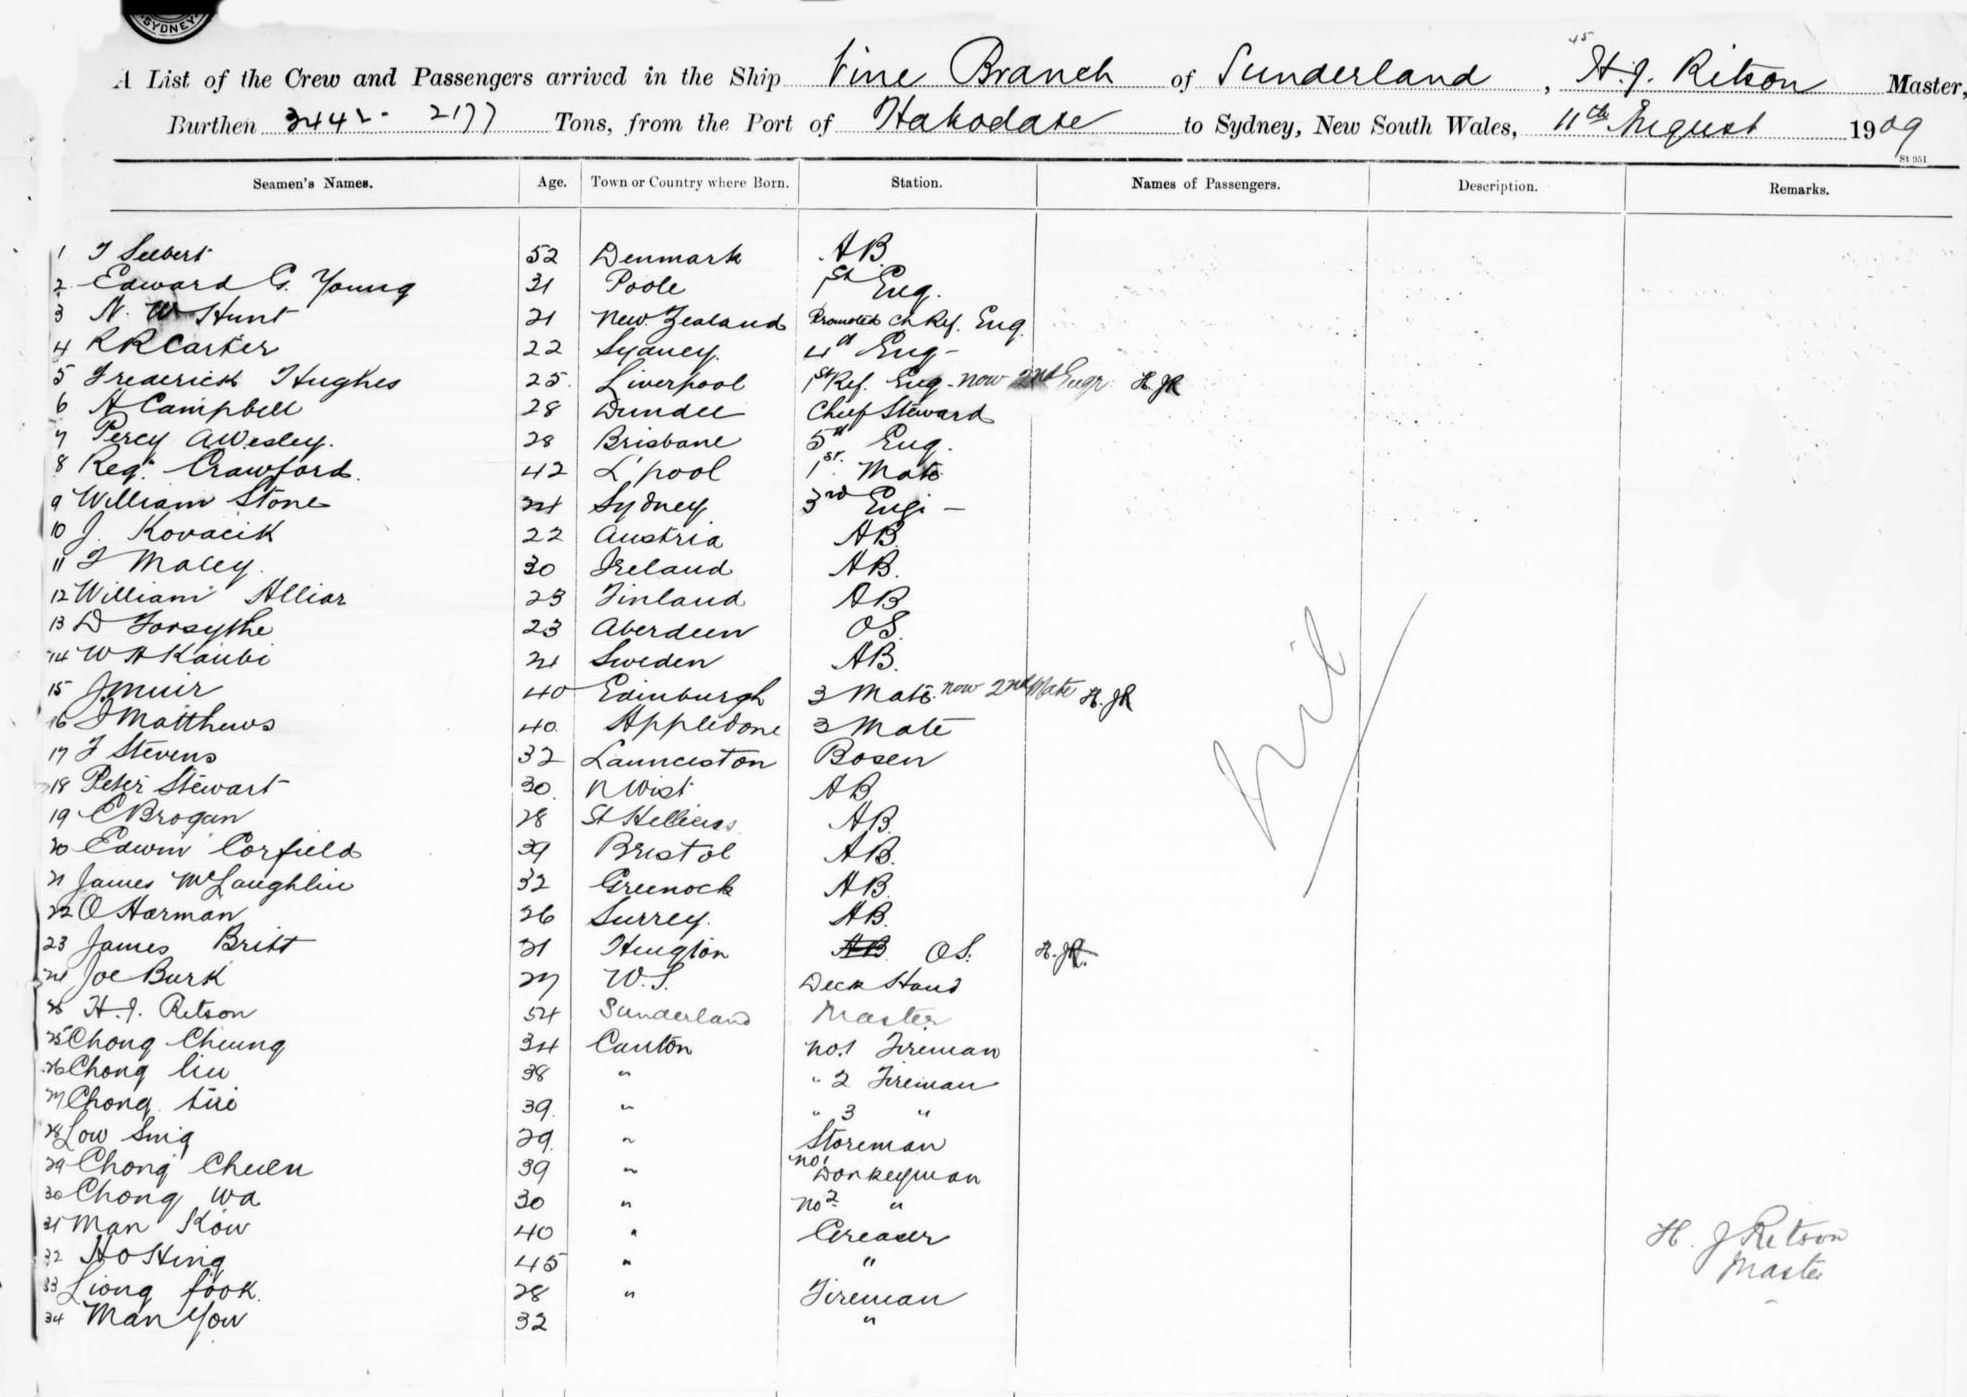 SYDNEY
A List of the Crew and Passengers arrived in the Ship Vine Branch of Sunderland, H. J. Ritson Master,
Burthen 3442 - 2177 Tons, from the Port of Hakodate to Sydney, New South Wales, 11th August 1909
St 951
Seamen's Names. Age. Town or Country where Born. Station. Names of Passengers. Description. Remarks.
1 52 Denmark AB
2 Edward G. Young 31 Poole 1st Eng.
3 N. W Hunt 21 New Zealand Promoted Ch Ref. Eng
4 R R Carter 22 Sydney. 4th Eng -
5 Frederick Hughes 25 Liverpool 1st Ref. Eng - now 2nd Engr. H. J R
6 A Campbell 28 Dundee Chief Steward
7 Percy A Wesley. 28 Brisbane 5th Eng.
8 Reg. Crawford. 42 L'pool 1st. Mate
9 William Stone 24 Sydney 3rd Engi -
10 J. Kovacik 22 Austria AB
11 Maley. 30 Ireland AB.
12 William Alliar 23 Finland AB
13 D Forsythe 23 Aberdeen OS.
14 W A Kaubi 21 Sweden AB.
15 J Muir 40 Edinburgh 3 Mate now 2nd Mate H. J R
16 J Matthews 40. Appledore 3 Mate
17 F Stevens 32 Launceston Bosen
18 Peter Stewart 30. N Uist AB
19 C Brogan 28 St Helliers AB
20 Edwin Corfield 39 Bristol AB.
21 James McLaughlin 32 Greenock AB
22 O Harman 26 Surrey. AB.
23 James Britt 21 AB OS. H. J R.
24 Joe Burk 27 Deck Hand
25 H. J. Ritson 54 Sunderland Master
25 Chong Cheung 34 Canton No. 1 Fireman
26 Chong liu 38 " " 2 Fireman
27 Chong 39. " " 3 "
28 Low Sing 29. " Storeman
29 Chong Chuen 39 " No 1 Donkeyman
30 Chong Wa 30 " No 2 "
31 Man Kow 40 " Greaser
32 Ho Hing 45 " "
33 Liong fook. 28 " Fireman
34 Man You 32 "
Nil
H. J Ritson
Master